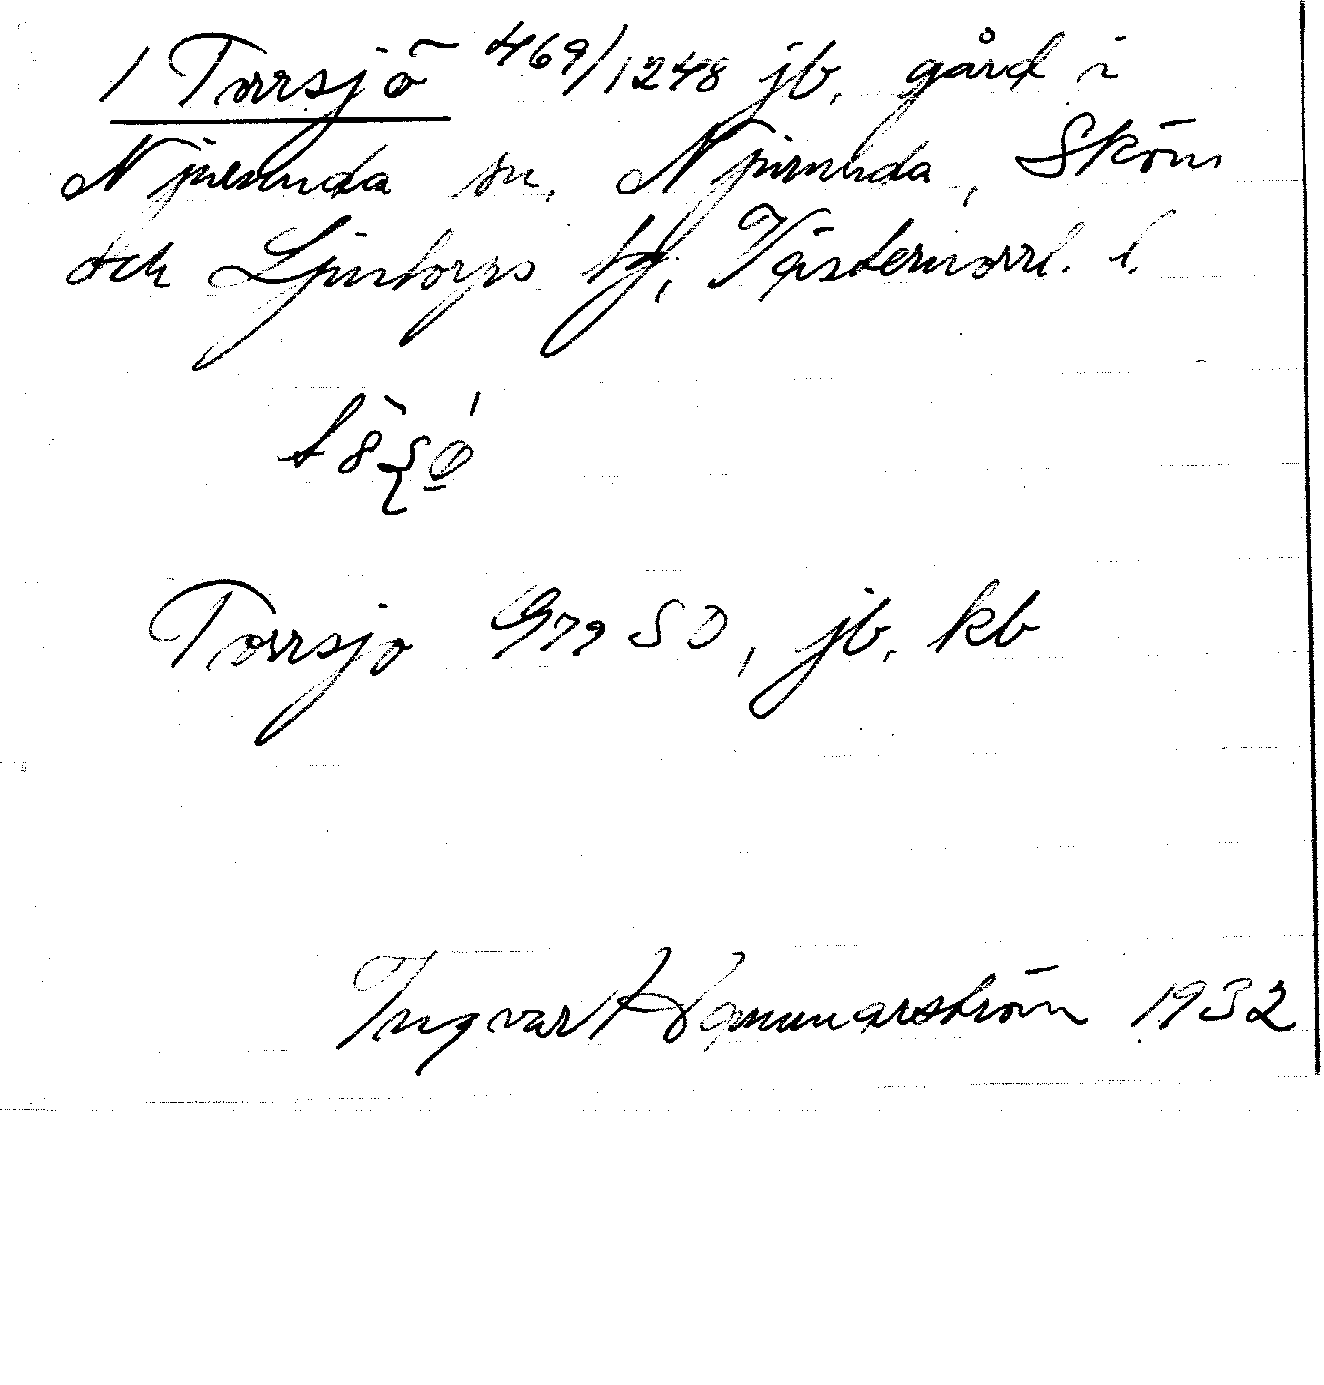 1 Torrsjö 469/1248 jb. gård i
Njurunda sn. Njurunda, Sköns
och Ljustorps tg, Västernorrl. l.
Torrsjo G79 SO, jb. kb
Ingvar Hammarström 1932